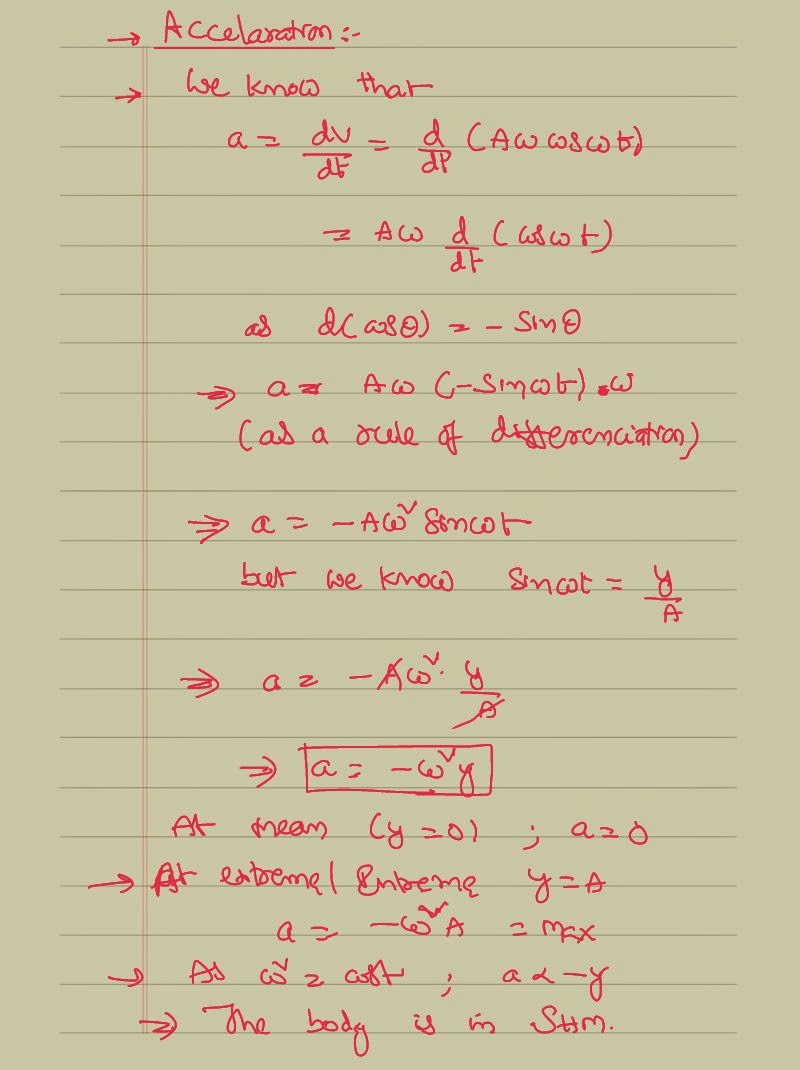 → Accelaration :-
→ We know that
a = dv/dt = d/dt (Aω cosωt)
= Aω d/dt (cosωt)
as d(cosθ) = - Sinθ
⇒ a = Aω (-Sinωt).ω
(as a rule of differenciation)
⇒ a = -Aω² Sinωt
but we know Sinωt = y/A
⇒ a = -Aω². y/A
⇒ a = -ω²y
At mean (y=0) ; a=0
→ At extreme/ Extreme y=A
a = -ω²A = max
→ As ω² = cost ; a ∝ -y
⇒ The body is in SHM.